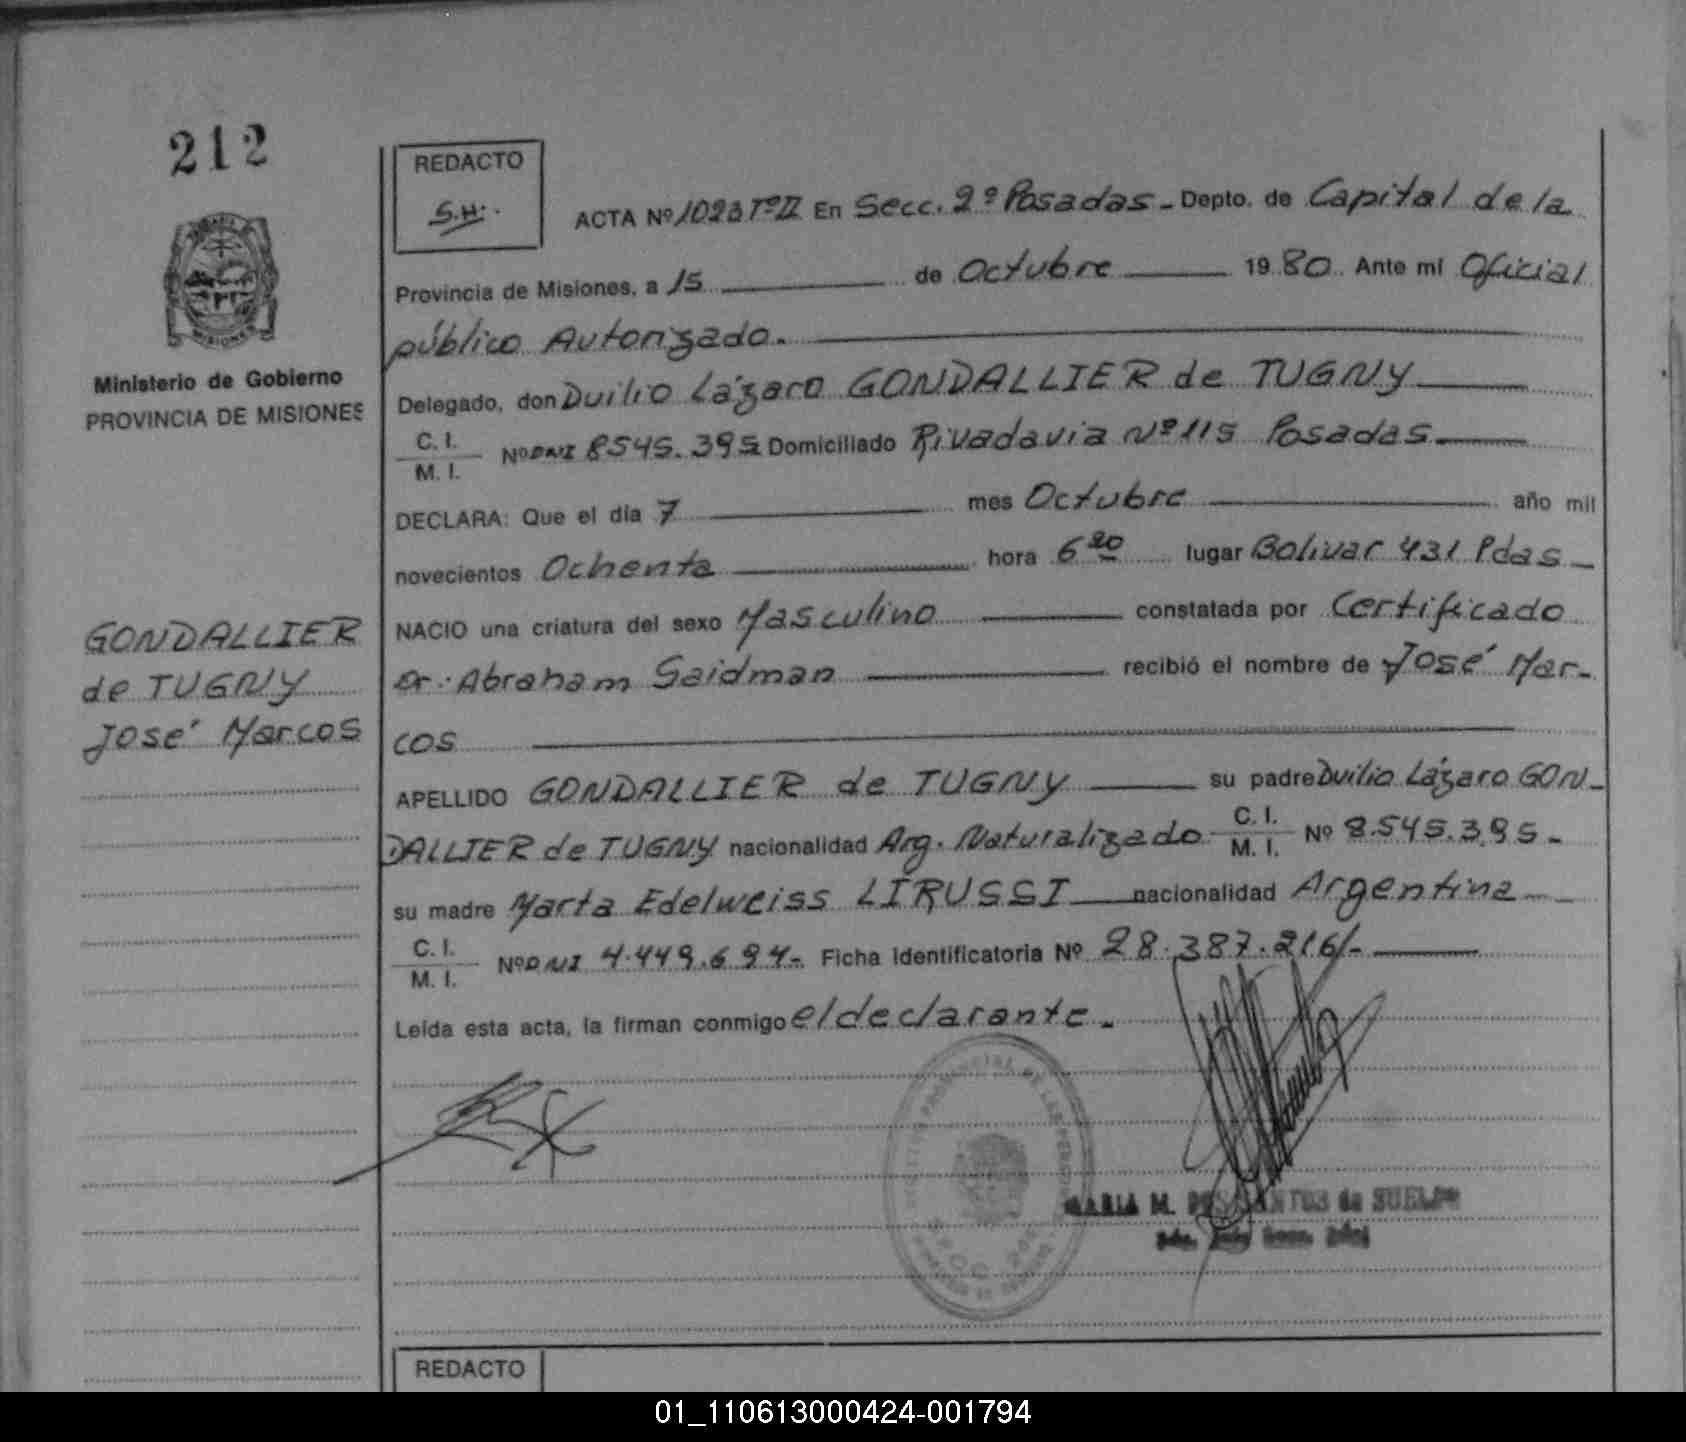 212
REDACTO
S.H.
ACTA Nº 1023 Tº II En Secc. 2º Posadas - Depto. de Capital de la
Provincia de Misiones, a 15 de Octubre 1980. Ante mi Oficial
público Autorizado.
MISIONES
Ministerio de Gobierno
PROVINCIA DE MISIONES
Delegado, don Duilio Lázaro GONDALLIER de TUGNY
C. I.
M. I. Nº DNI 8545.395 Domiciliado Rivadavia Nº 115 Posadas.
DECLARA: Que el día 7 mes Octubre año mil
novecientos Ochenta hora 6 20 lugar Bolivar 431 Pdas
NACIO una criatura del sexo Masculino constatada por Certificado
Dr. Abraham Saidman recibió el nombre de José Mar-
cos
GONDALLIER
de TUGNY
José Marcos
APELLIDO GONDALLIER de TUGNY su padre Duilio Lázaro GON-
DALLIER de TUGNY nacionalidad Arg. Naturalizado C. I. M. I. Nº 8.545.395-
su madre Marta Edelweiss LIRUSSI nacionalidad Argentina
C. I.
M. I. Nº DNI 4.449.694- Ficha Identificatoria Nº 28.387.216/-
Leída esta acta, la firman conmigo el declarante.
MARIA M. de
REDACTO
01_110613000424-001794